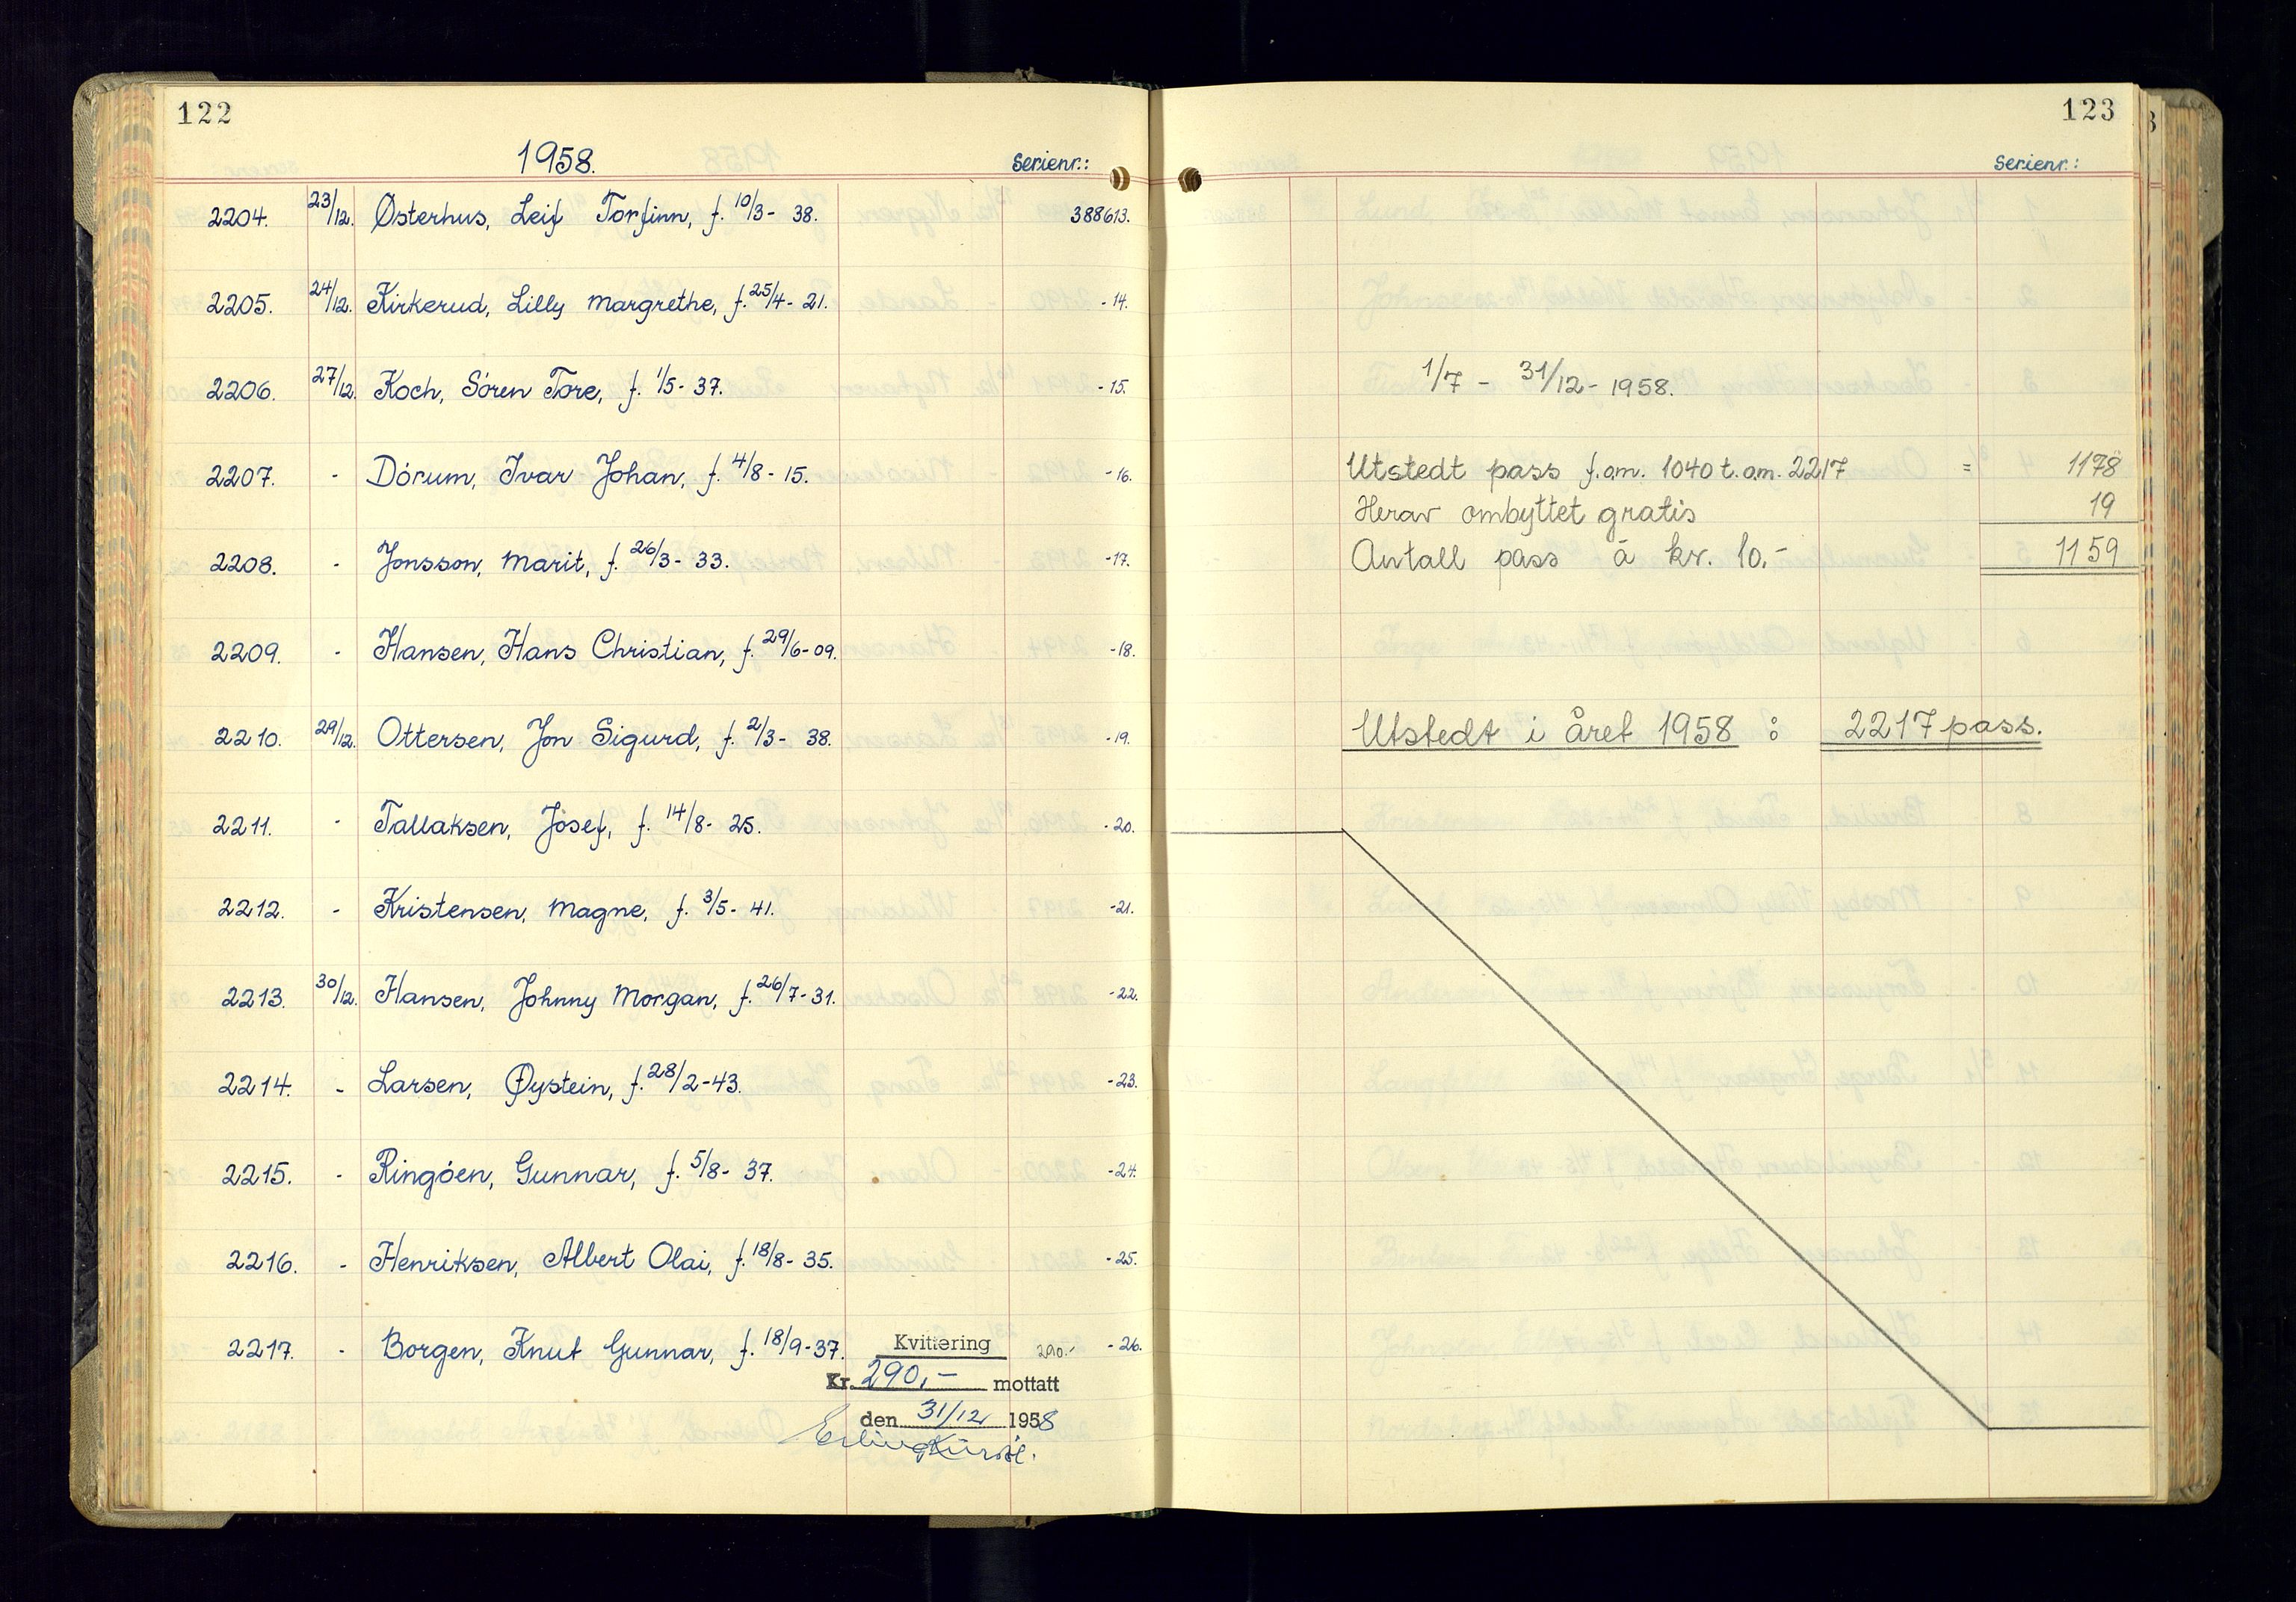 122
1958.
Serienr.:
2204. 23/12. Østerhus, Leif Torfinn, f. 10/3- 38. 388613.
2205. 24/12. Kirkerud, Lilly Margrethe, f. 25/4- 21. -14.
2206. 27/12. Koch, Sören Tore, f. 1/5- 37. -15.
2207. - Dórum, Ivar Johan, f. 4/8- 15. -16.
2208. - Jonsson, Marit, f. 26/3- 33. -17.
2209. - Hansen, Hans Christian, f. 29/6-09. -18.
2210. 29/12. Ottersen, Jon Sigurd, f. 2/3- 38. -19.
2211. - Tallaksen, Josef, f. 14/8- 25. -20.
2212. - Kristensen, Magne, f. 3/5- 41. -21.
2213. 30/12. Hansen, Johnny Morgan, f. 26/7-31. -22.
2214. - Larsen, Øystein, f. 28/2-43. -23.
2215. - Ringóen, Gunnar, f. 5/8- 37. -24.
2216. - Henriksen, Albert Olai, f. 18/8- 35. -25.
2217. - Borgen, Knut Gunnar, f. 18/9-37. 290.- -26.
Kvittering
Kr. 290,- mottatt
den 31/12 1958
123
Serienr.:
1/7 - 31/12 - 1958.
Utstedt pass f.o.m. 1040 t.o.m. 2217 = 1178
Herav ombyttet gratis 19
Antall pass à kr. 10,- 1159
Utstedt i året 1958 : 2217 pass.